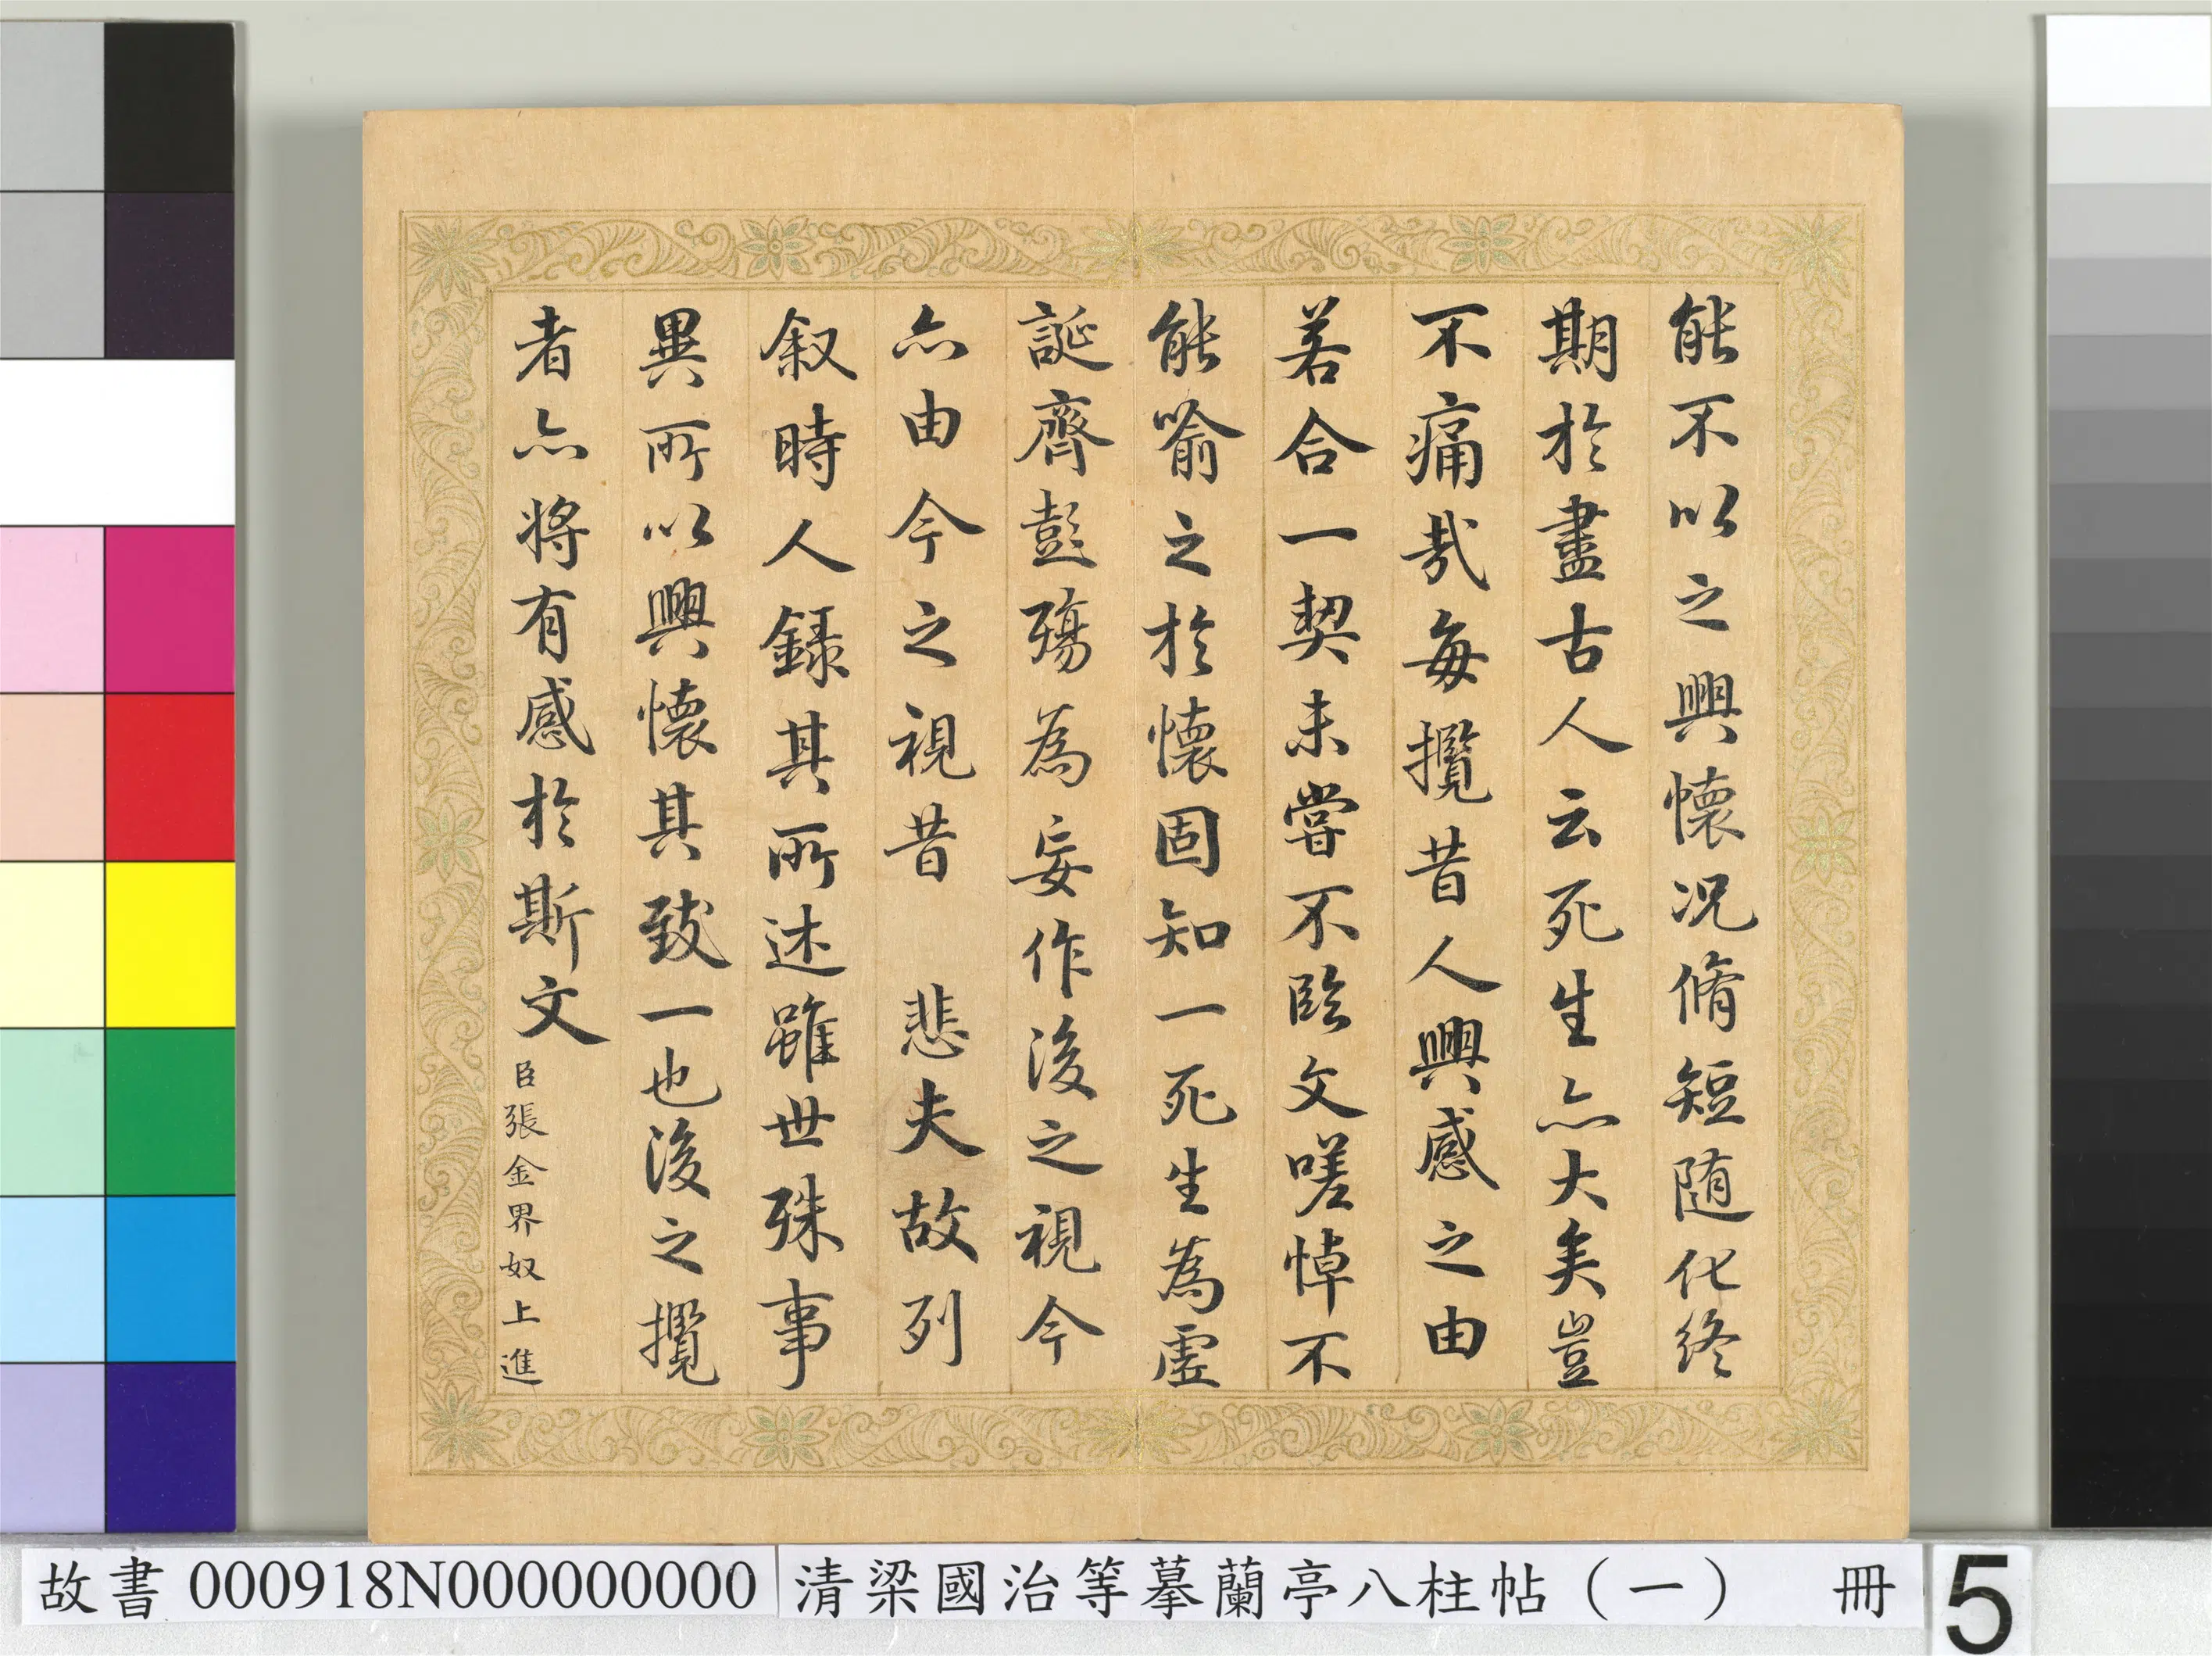 能不以之興懷况脩短随化終
期於盡古人云死生亦大矣豈
不痛哉每攬昔人興感之由
若合一契未嘗不臨文嗟悼不
能喻之於懷固知一死生為虛
誕齊彭殤為妄作後之視今
亦由今之視昔　悲夫故列
叙時人錄其所述雖世殊事
異所以興懷其致一也後之攬
者亦將有感於斯文
臣張金界奴上進
故書 000918N000000000
清梁國治等摹蘭亭八柱帖（一）　冊
5